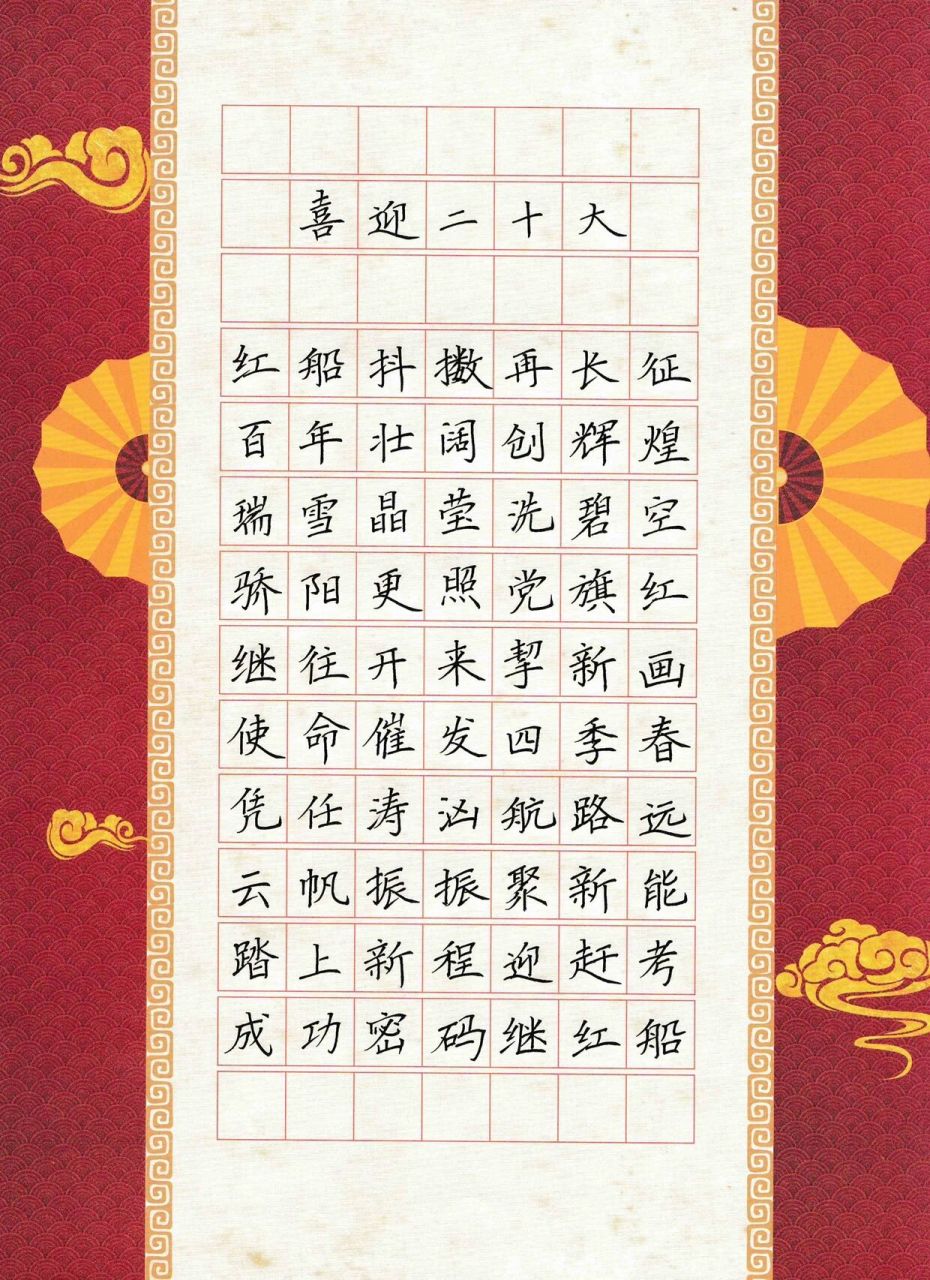 喜迎二十大
红船抖擞再长征
百年壮阔创辉煌
瑞雪晶莹洗碧空
骄阳更照党旗红
继往开来挈新画
使命催发四季春
凭任涛汹航路远
云帆振振聚新能
踏上新程迎赶考
成功密码继红船